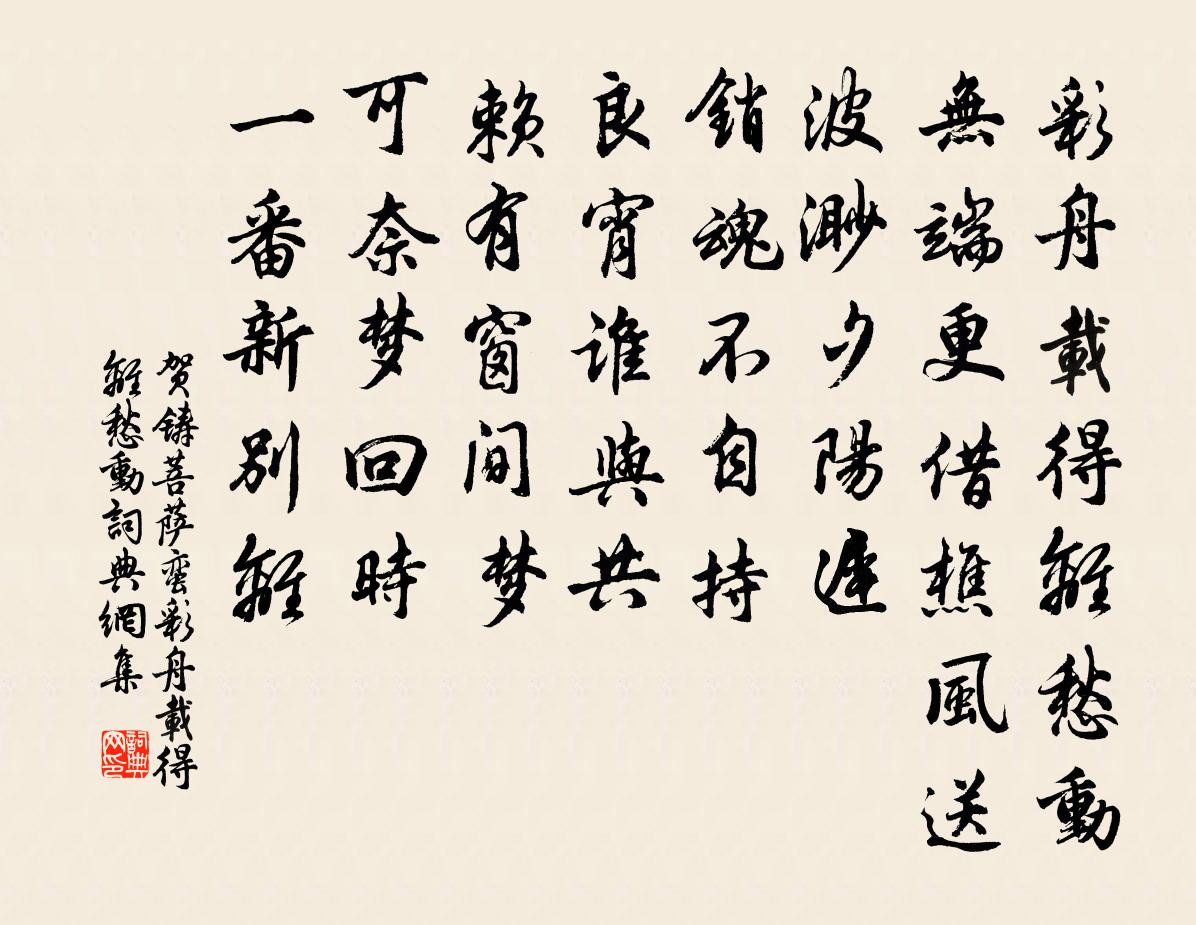 彩舟載得離愁動
無端更借樵風送
波渺夕陽遲
銷魂不自持
良宵誰與共
賴有窗間梦
可奈梦回時
一番新別離
贺鑄菩萨蛮彩舟載得
離愁動詞典網集
詞典
网印